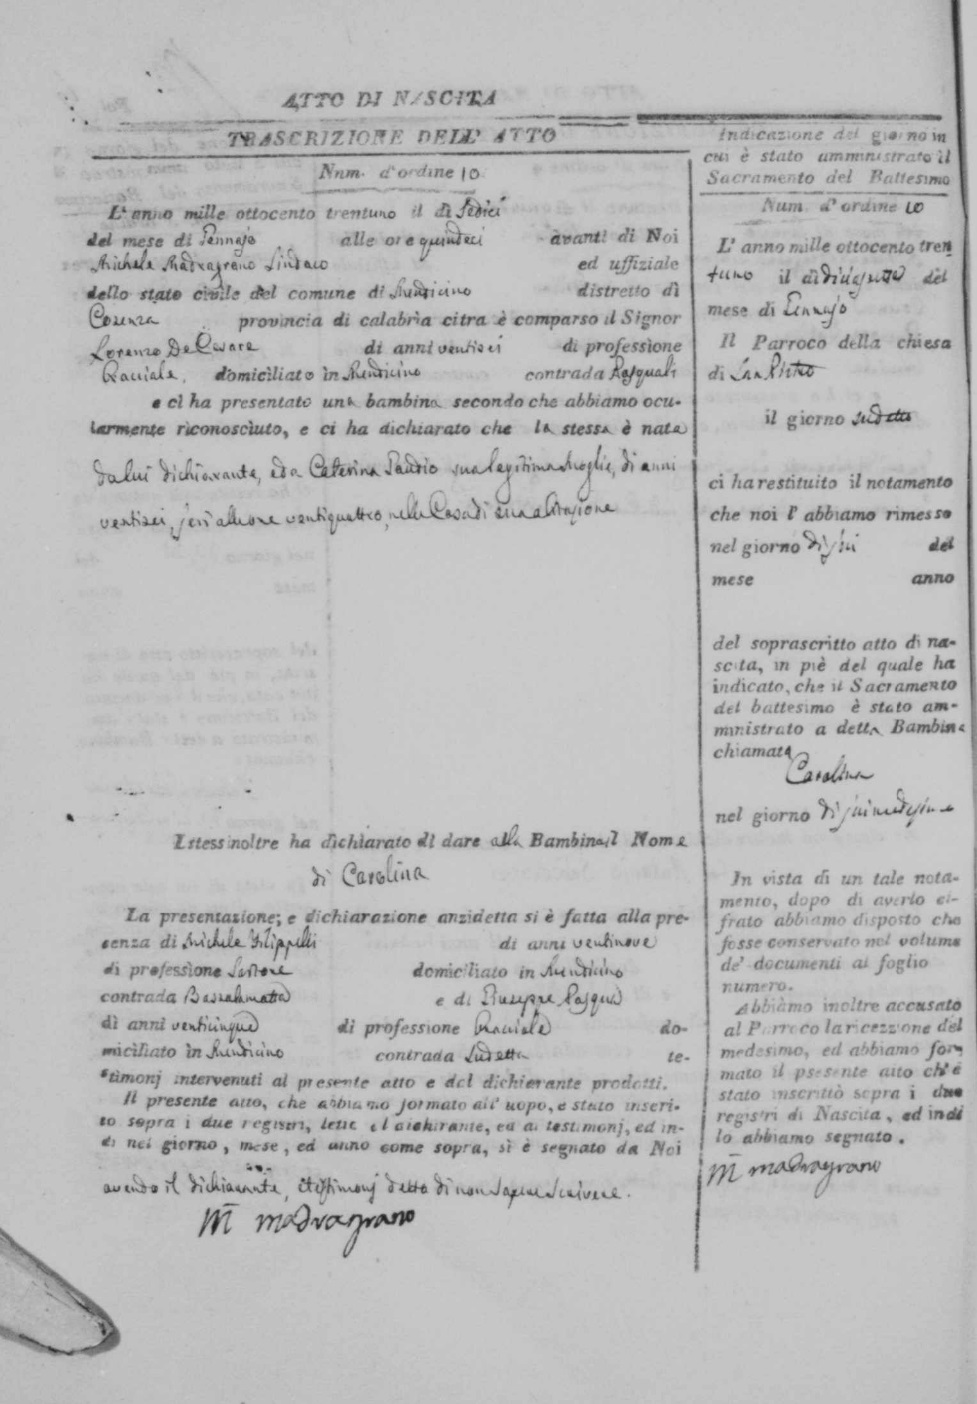 ATTO DI NASCITA
TRASCRIZIONE DELL' ATTO
Num. d'ordine 10
L'anno mille ottocento trentuno il dì Sedici
del mese di Gennajo alle ore quindeci avanti di Noi
Michele Madragrano Sindaco ed uffiziale
dello stato civile del comune di Mendicino distretto di
Cosenza provincia di calabria citra è comparso il Signor
Lorenzo De Cesare di anni ventisei di professione
Bracciale, domiciliato in Mendicino contrada Pasquali
e ci ha presentato una bambina secondo che abbiamo ocu-
larmente riconosciuto, e ci ha dichiarato che la stessa è nata
da lui dichiarante, ed a Caterina Gaudio sua legitima Moglie, di anni
ventisei, jeri alle ore ventiquattro, nella Casa di sua abitazione
Istess inoltre ha dichiarato di dare alla Bambina il Nome
di Carolina
La presentazione; e dichiarazione anzidetta si è fatta alla pre-
senza di Michele Filippelli di anni ventinove
di professione Sartore domiciliato in Mendicino
contrada e di Giuseppe Pasqua
di anni venticinque di professione Bracciale do-
miciliato in Mendicino contrada Sudetta te-
stimonj intervenuti al presente atto e del dichierante prodotti.
Il presente atto, che abbiamo formato all' uopo, e stato inseri-
to sopra i due registri, letto al dichirante, ed ai testimonj, ed in-
di nel giorno, mese, ed anno come sopra, sì è segnato da Noi
avendo il dichiarante, e testimonj detto di non sapere scrivere.
M madragrano
Indicazione del giorno in
cui è stato amministrato il
Sacramento del Battesimo
Num. d'ordine 10
L'anno mille ottocento tren
tuno il dì diciasette del
mese di Gennajo
Il Parroco della chiesa
di San Pietro
il giorno sudetto
ci ha restituito il notamento
che noi l' abbiamo rimesso
nel giorno del
mese anno
del soprascritto atto di na-
scita, in piè del quale ha
indicato, che il Sacramento
del battesimo è stato am-
ministrato a detta Bambina
chiamata
Carolina
nel giorno
In vista di un tale nota-
mento, dopo di averlo ci-
frato abbiamo disposto che
fosse conservato nel volume
de' documenti al foglio
numero.
Abbiàmo inoltre accusato
al Parroco la ricezzione del
medesimo, ed abbiamo for-
mato il psesente atto ch'è
stato inscrittò sopra i due
registri di Nascita, ed indi
lo abbiamo segnato.
M madragrano